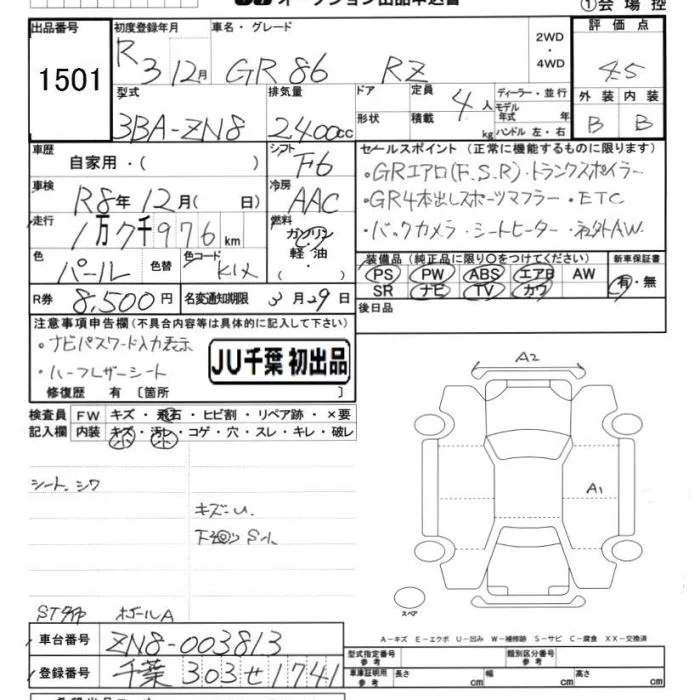 オークション出品申込書
①会場控
出品番号 1501
初度登録年月 R3 12月
車名・グレード GR86 RZ
2WD・4WD
評価点 4.5
型式 3BA-ZN8
排気量 2400cc
ドア 形状
定員 4人
積載 kg
ディーラー・並行
モデル年式 年
ハンドル 左・右
外装 B
内装 B
車歴 自家用・( )
シフト F6
セールスポイント (正常に機能するものに限ります)
・GRエアロ(F.S.R)・トランクスポイラー
・GR4本出しスポーツマフラー・ETC
・バックカメラ・シートヒーター・社外AW.
車検 R8年12月( 日)
冷房 AAC
走行 1万7千976km
燃料 ガソリン 軽油 ・( )
色 パール
色替
色コード K1X
装備品 (純正品に限り○をつけてください)
PS PW ABS エアB AW
SR ナビ TV カワ
新車保証書 有・無
R券 8,500円
名変通知期限 3月29日
後日品
注意事項申告欄 (不具合内容等は具体的に記入して下さい)
・ナビパスワード入力表示
・ハーフレザーシート
JU千葉 初出品
修復歴 有 〔箇所 〕
検査員記入欄
FW キズ・飛石・ヒビ割・リペア跡・×要
内装 キズ・汚レ・コゲ・穴・スレ・キレ・破レ
小 小
シート.シワ
キズ-U.
下廻り S-1.
A2
A1
スペア
ホイールA
A-キズ E-エクボ U-凹み W-補修跡 S-サビ C-腐食 XX-交換済
車台番号 ZN8-003813
登録番号 千葉 303 せ 1741
型式指定番号 参考
類別区分番号 参考
車庫証明用参考 長さ cm 幅 cm 高さ cm